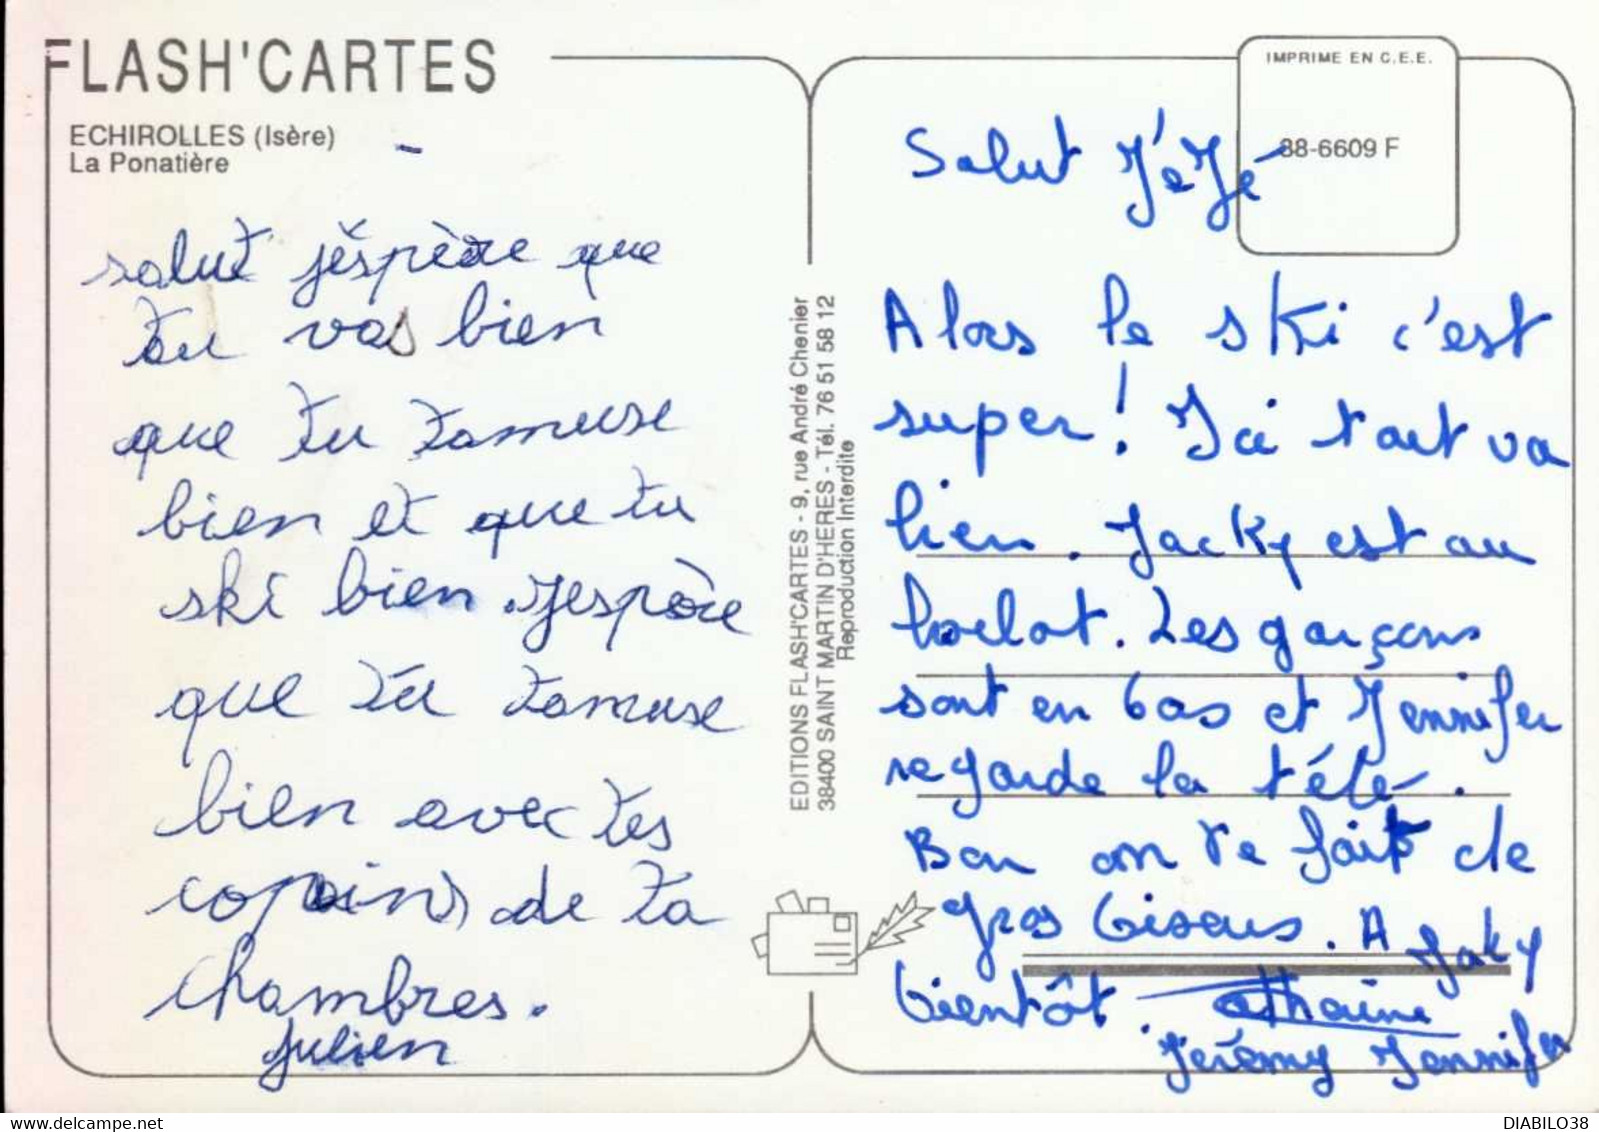 FLASH'CARTES
ECHIROLLES (Isère)
La Ponatière
salut jéspère que
tu vas bien
que tu tamuse
bien et que tu
ski bien. jespère
que tu tamuse
bien avec tes
copains de ta
chambres.
Julien
EDITIONS FLASH'CARTES - 9, rue André Chenier
38400 SAINT MARTIN D'HERES - Tél. 76 51 58 12
Reproduction Interdite
IMPRIME EN C.E.E.
88-6609 F
Salut JéJé
Alors le ski c'est
super! Ici tout va
bien. Jacky est au
boulot. Les garçons
sont en bas et Jennifer
regarde la télé.
Bon on te fait de
gros bisous. A
bientôt. Jaky
Jérémy Jennifer
DIABILO38